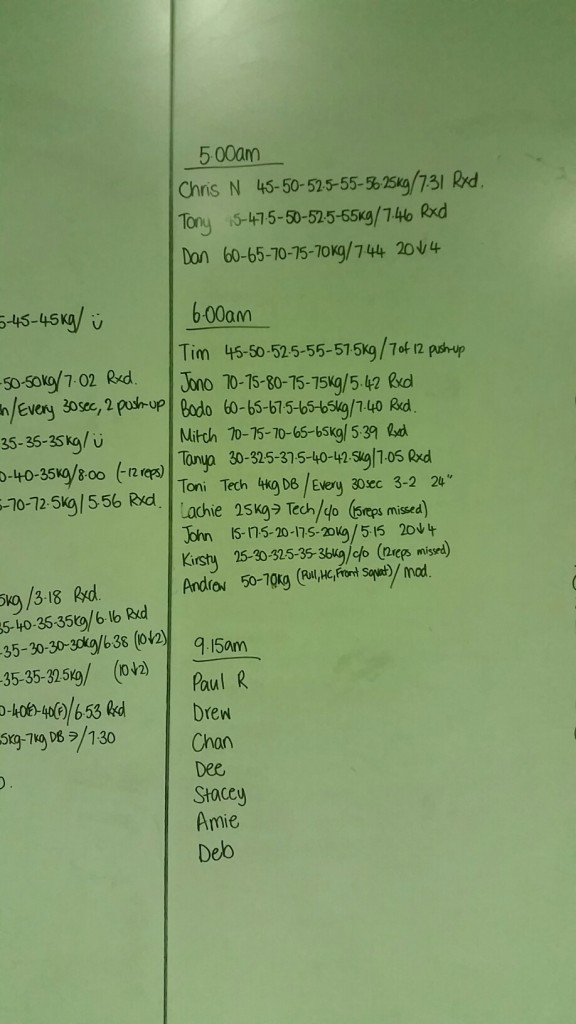 5-45-45kg/ ü
-50-50kg/7.02 Rxd.
/Every 30sec, 2 push-up
35-35-35kg/ü
0-40-35kg/8.00 (-12reps)
-70-72.5kg/5.56 Rxd.
5kg/3.18 Rxd.
35-40-35-35kg/6.16 Rxd
-35-30-30-30kg/6.38 (10↓2)
-35-35-32.5kg/ (10↓2)
0-40(F)-40(F)/6.53 Rxd
5kg-7kg DB →/7.30
5.00am
Chris N 45-50-52.5-55-56.25kg/7.31 Rxd.
Tony 45-47.5-50-52.5-55kg/7.46 Rxd
Dan 60-65-70-75-70kg/7.44 20↓4
6.00am
Tim 45-50-52.5-55-57.5kg/7 of 12 push-up
Jono 70-75-80-75-75kg/5.42 Rxd
Bodo 60-65-67.5-65-65kg/7.40 Rxd.
Mitch 70-75-70-65-65kg/5.39 Rxd
Tanya 30-32.5-37.5-40-42.5kg/7.05 Rxd
Toni Tech 4kg DB/Every 30sec 3-2 24"
Lachie 25kg→Tech/c/o (15reps missed)
John 15-17.5-20-17.5-20kg/5.15 20↓4
Kirsty 25-30-32.5-35-36kg/c/o (12reps missed)
Andrew 50-70kg (Pull, HC, Front Squat)/mod.
9.15am
Paul R
Drew
Chan
Dee
Stacey
Amie
Deb